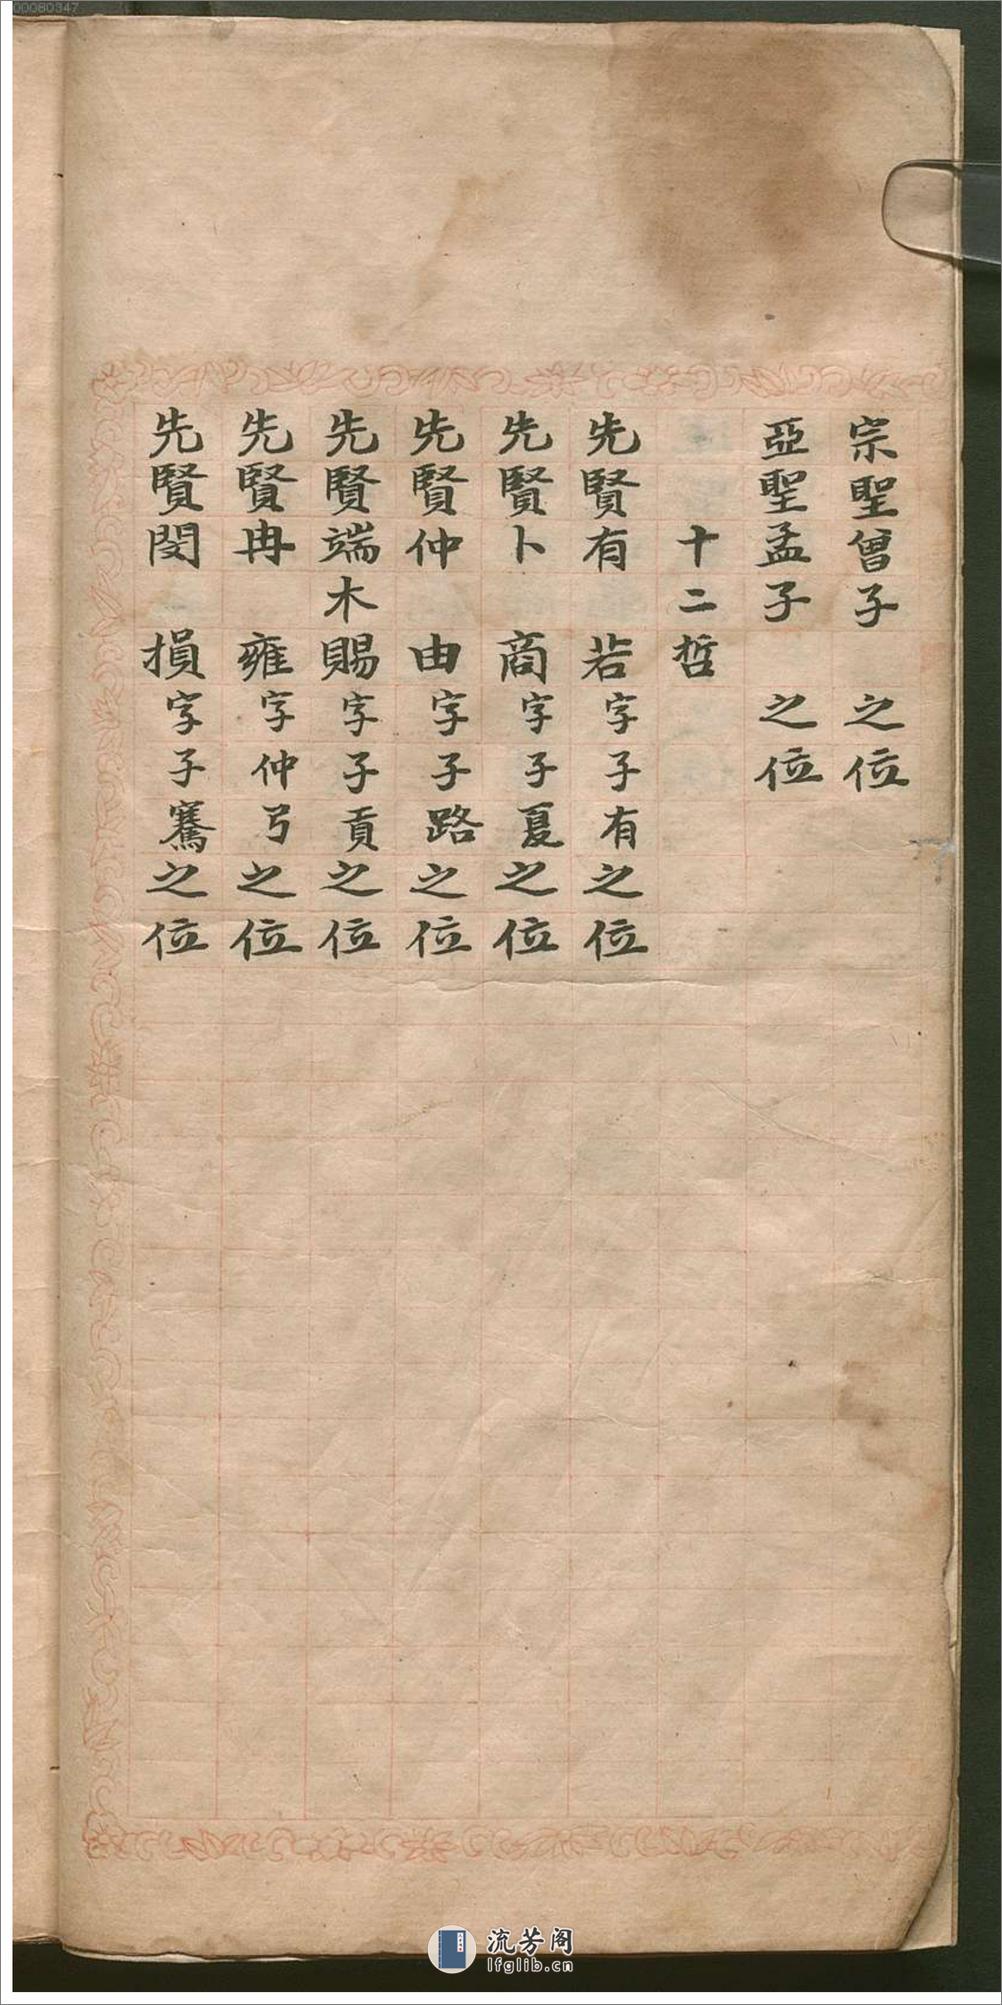 00080347
宗聖曾子　之位
亞聖孟子　之位
十二哲
先賢有　若字子有之位
先賢卜　商字子夏之位
先賢仲　由字子路之位
先賢端木賜字子貢之位
先賢冉　雍字仲弓之位
先賢閔　損字子騫之位
流芳阁
lfglib.cn